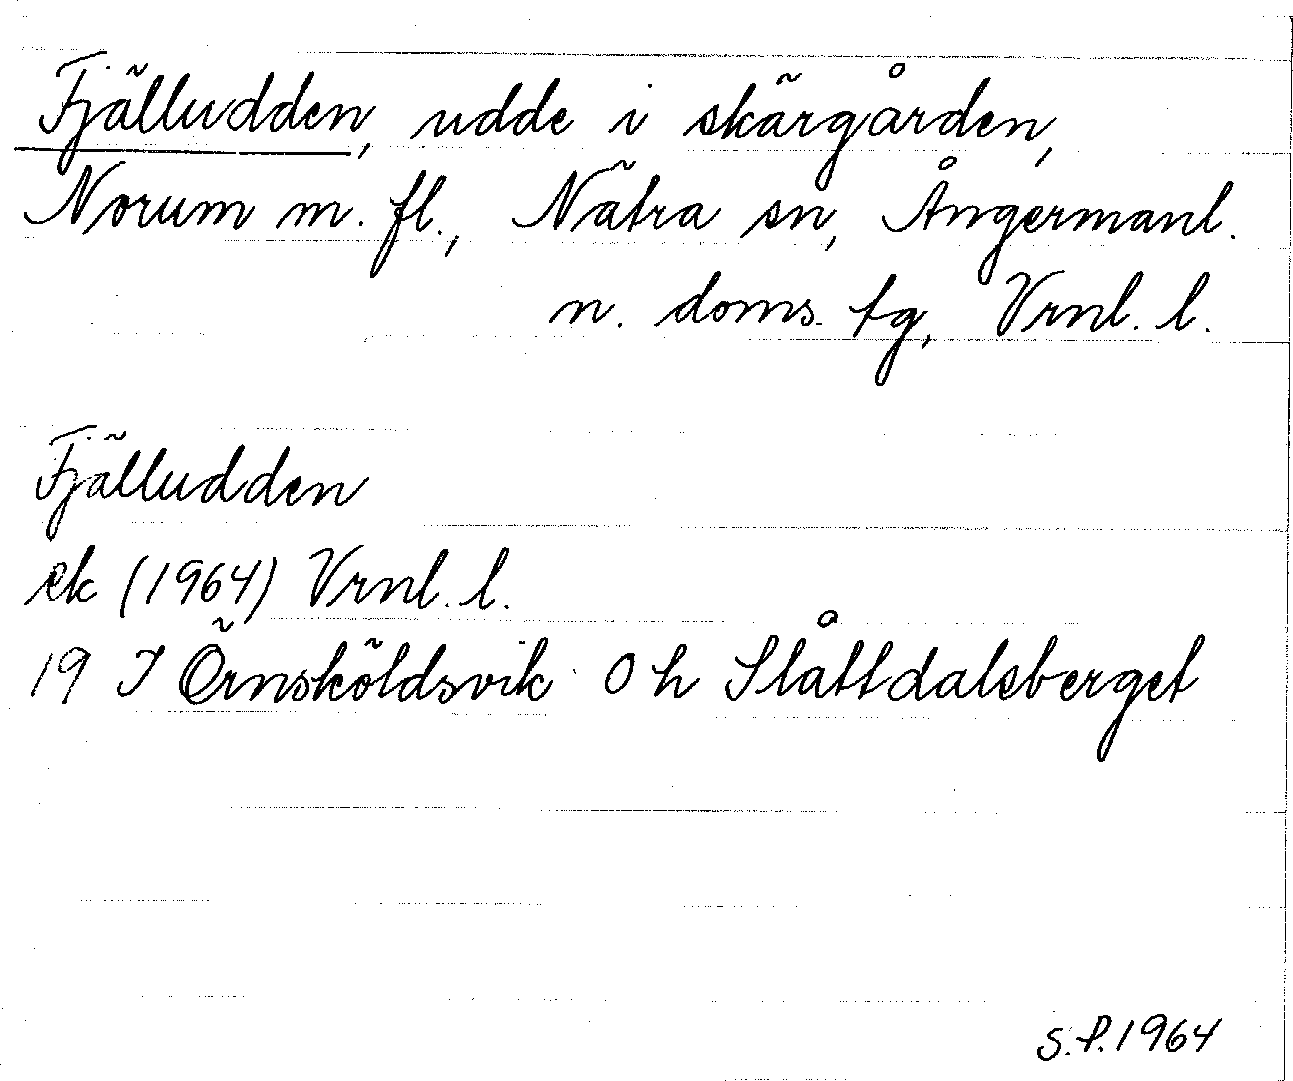 Fjälludden, udde i skärgården,
Norum m. fl., Nätra sn, Ångermanl.
n. doms. tg, Vrnl. l.
Fjälludden
ek (1964) Vrnl. l.
19 I Örnsköldsvik 0 h Slåttdalsberget
S.P. 1964